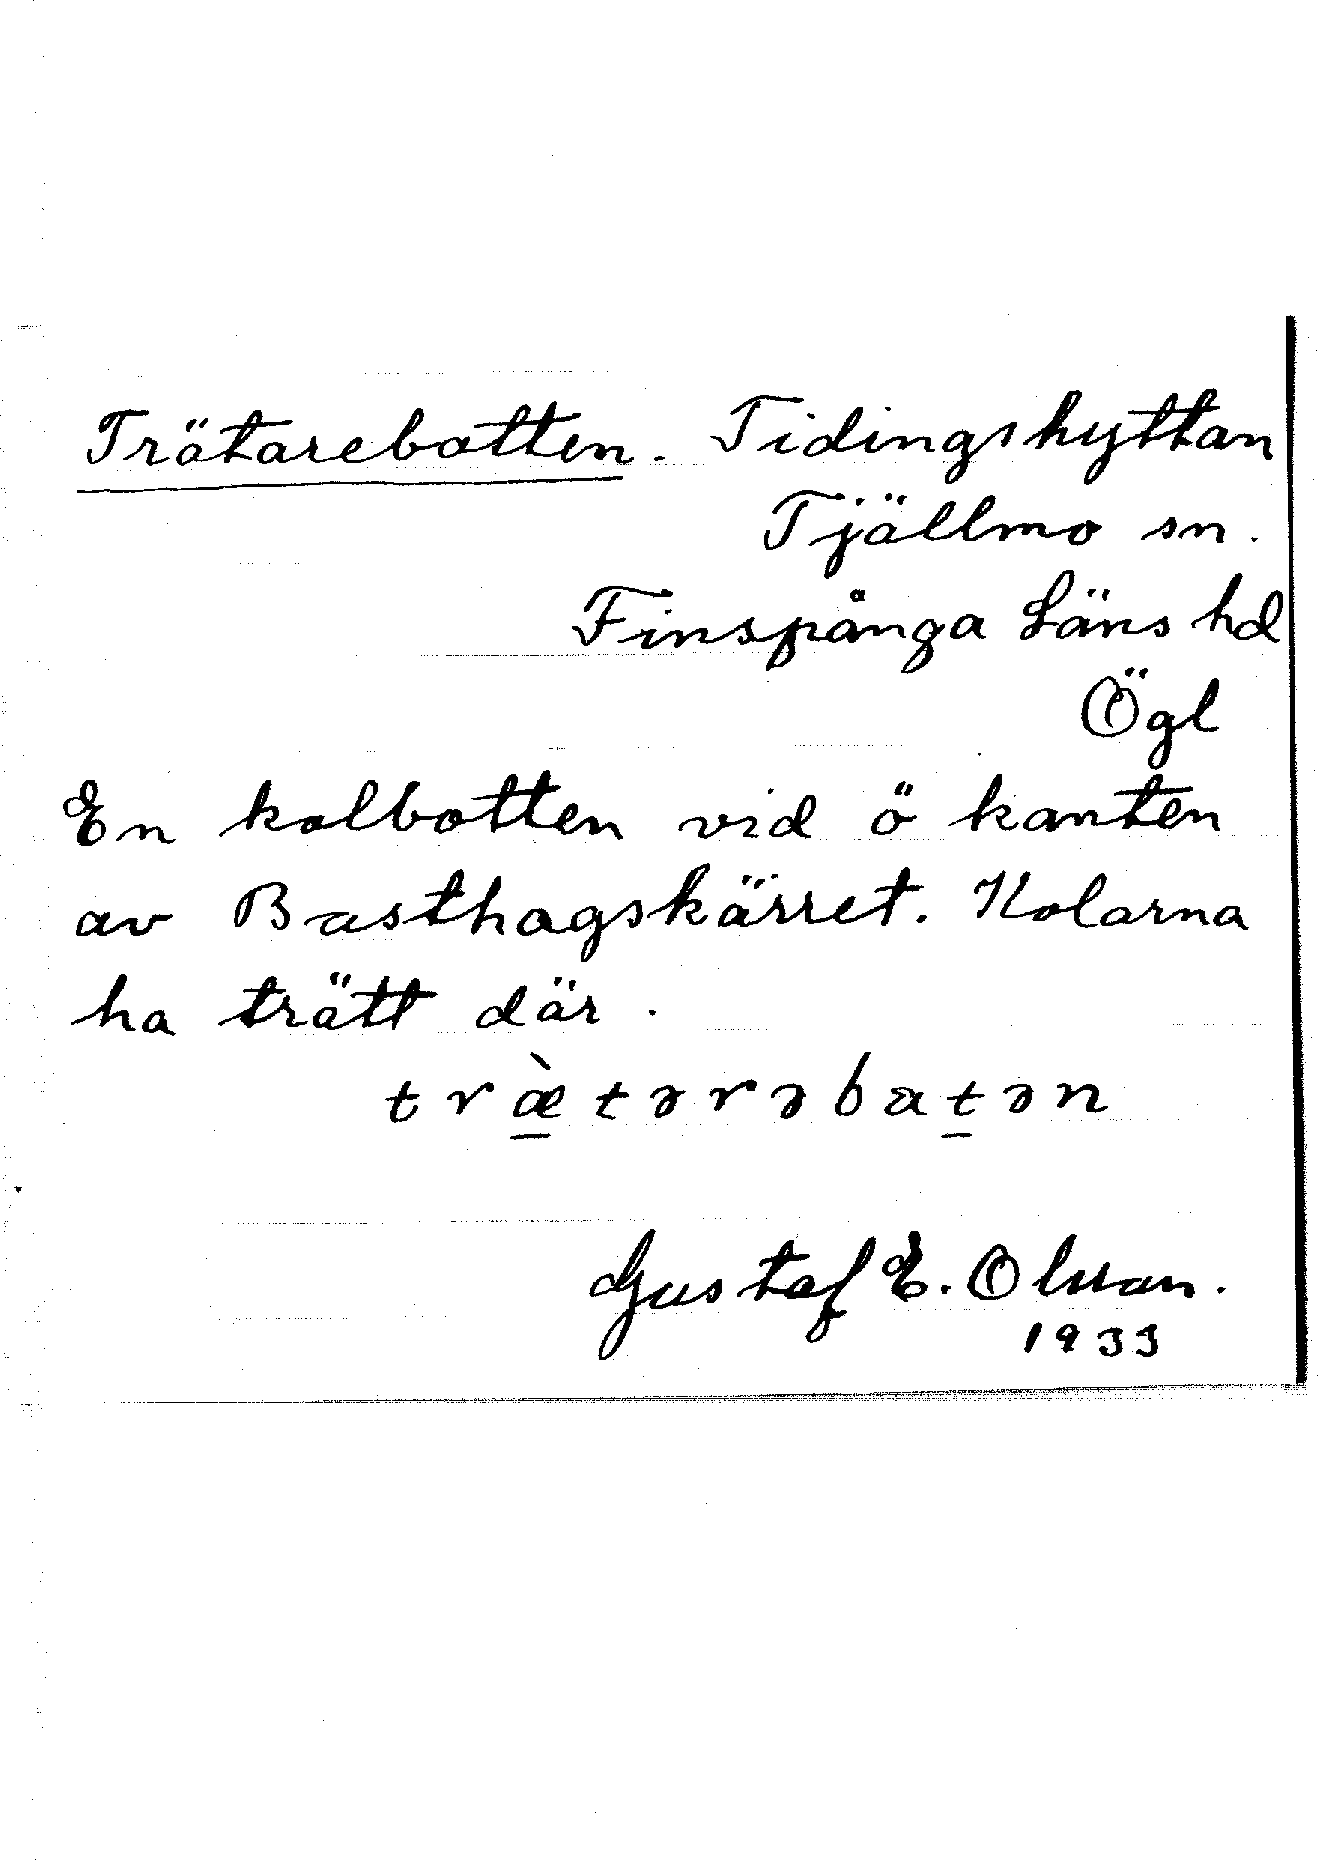 Trätarebotten. Tidingshyttan
Tjällmo sn.
Finspånga Läns hd
Ögl
En kolbotten vid ö kanten
av Basthagskärret. Kolarna
ha trätt där.
træ̠̀tərəbat̠ən
Gustaf E. Olsson.
1933